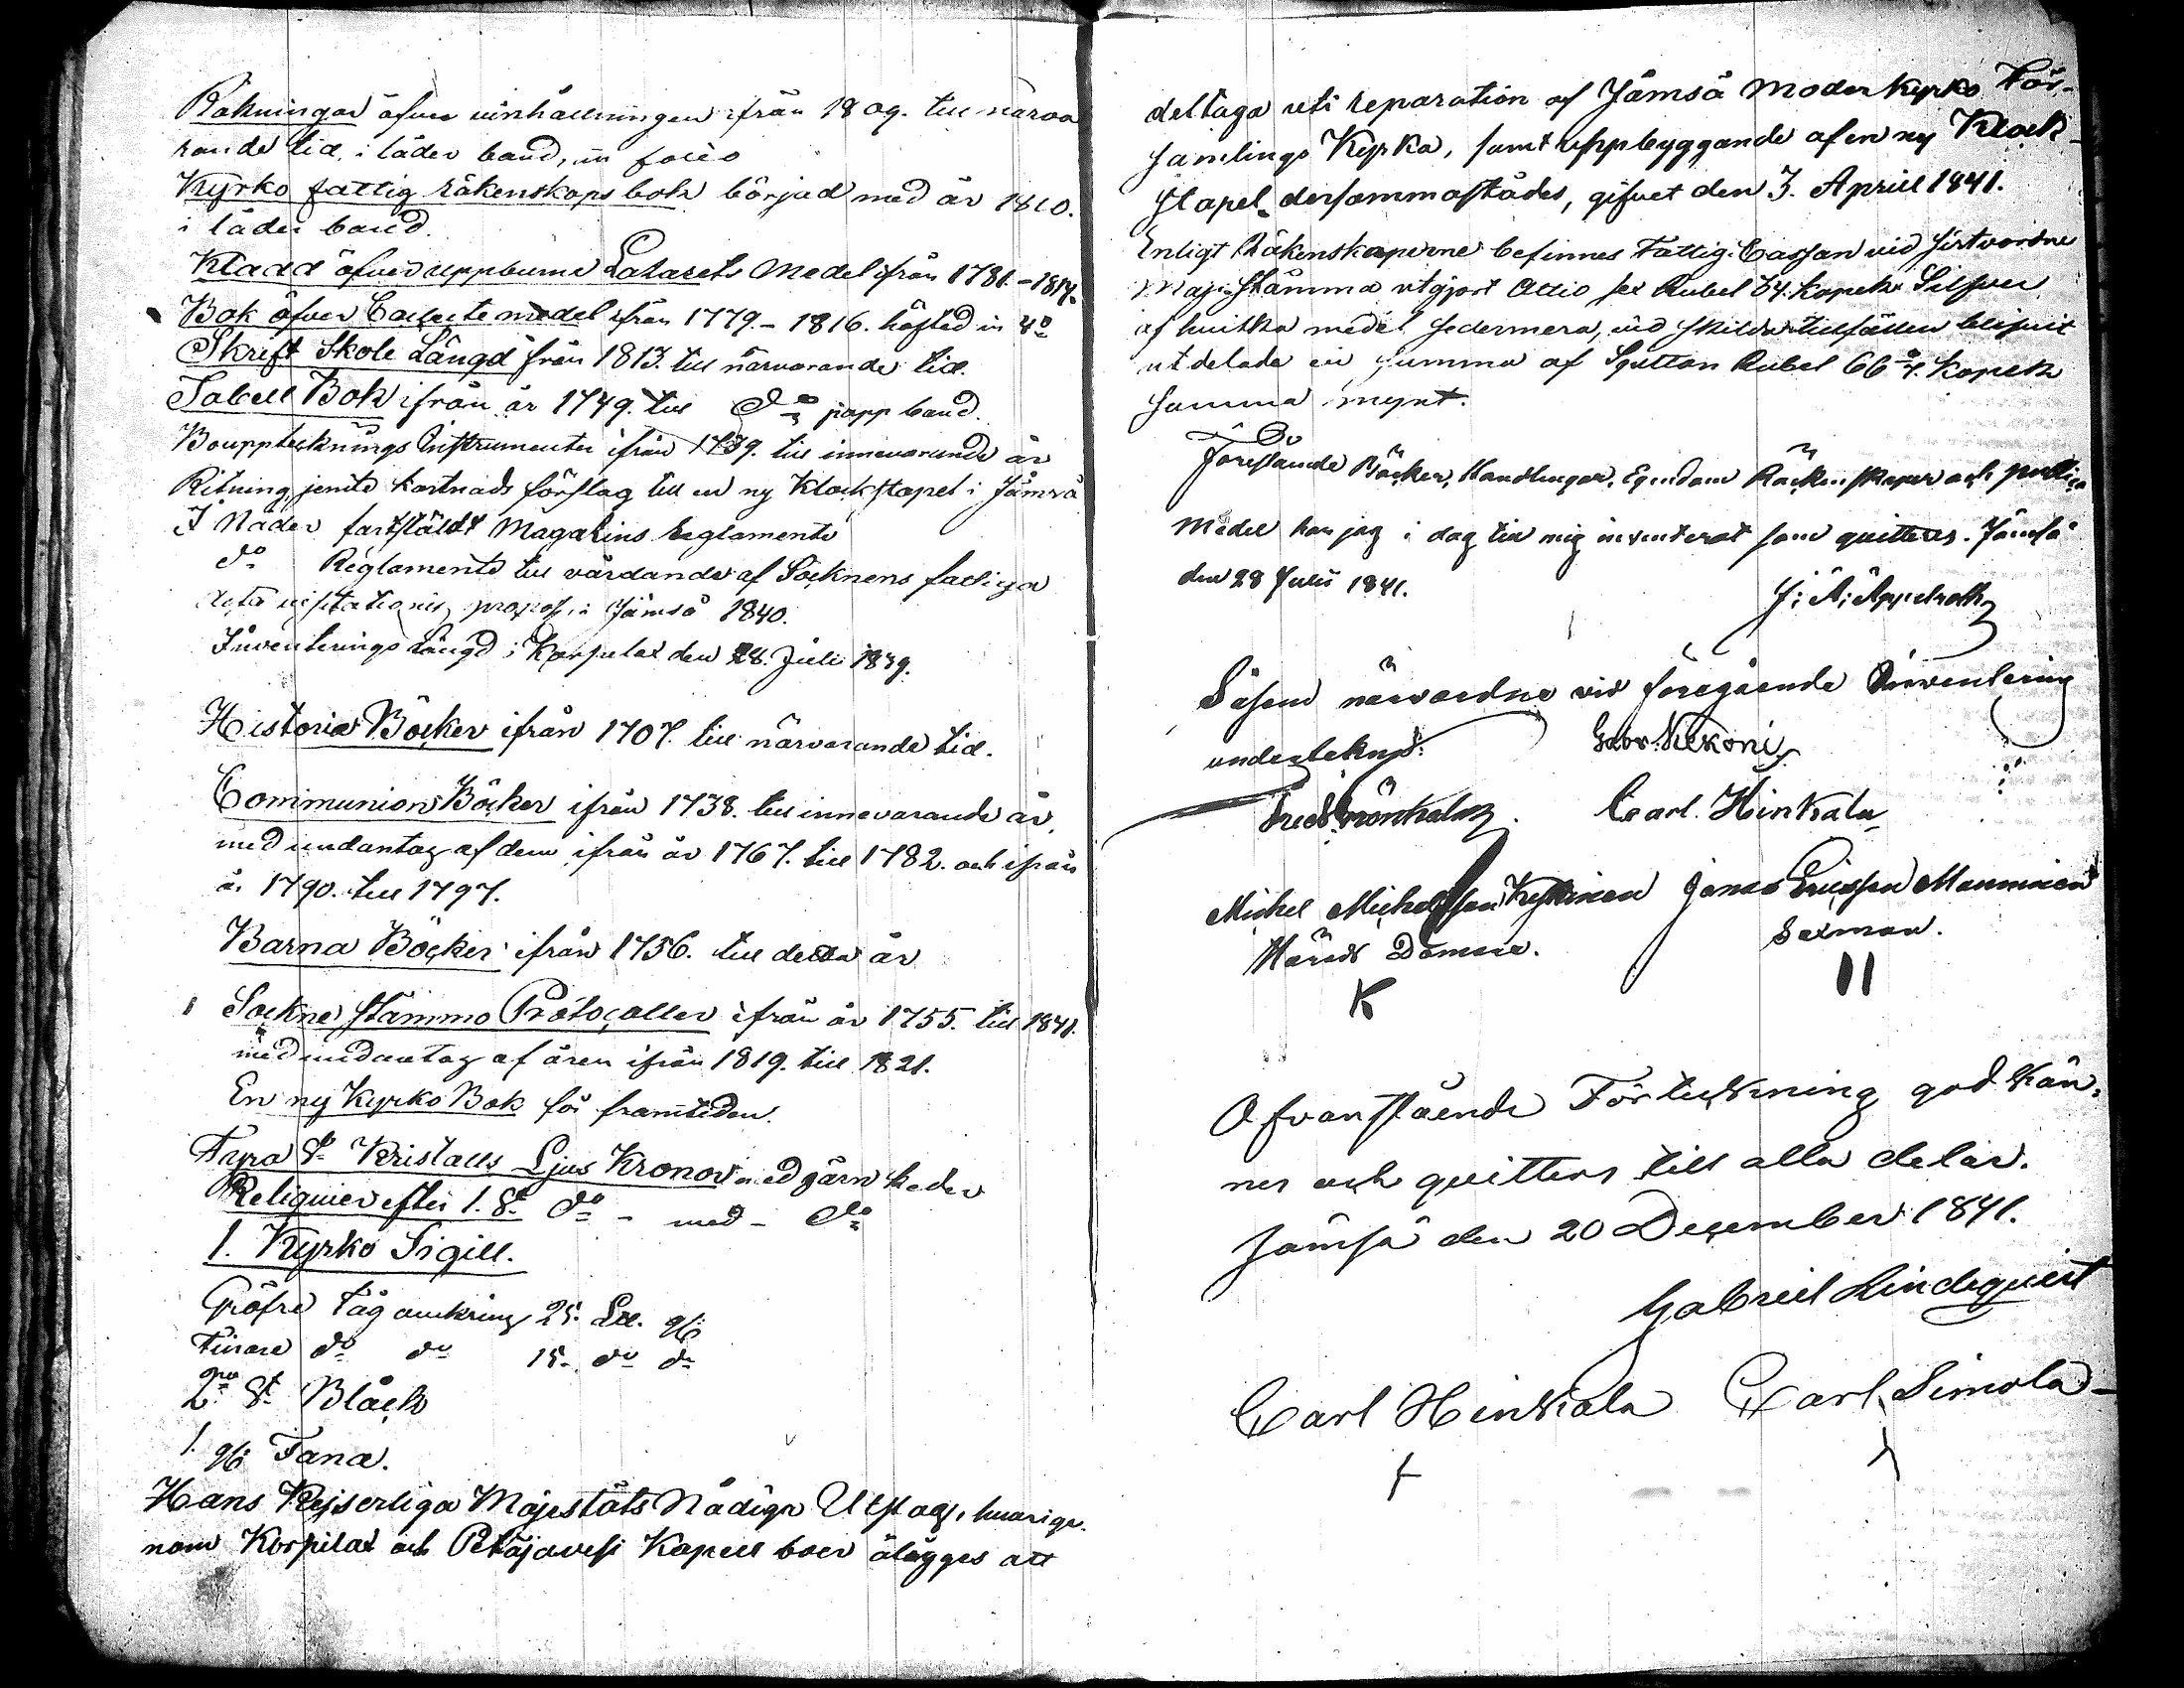 Räkningar öfver vinhållningen ifrån 1809. till närva
rande tid, i läder band, in folio
Kyrko fattig räkenskaps bok börjad med år 1810.
i läder band.
Kladd öfver uppburne Lazarets Medel från 1781.-1814.
Bok öfver medel ifrån 1779.- 1816. häftad in 4o
Skrift Skole Längd från 1813. till närvarande tid.
Tabell Bok ifrån år 1749. till do papp band.
Bouppteknings Instrumenter ifrån 1739. till innevarande år
Ritning jemte kostnads förslag till en ny Klockstapel i Jämsä
I Nåder fastställdt Magazins Reglamente
do Reglamente till vårdande af Socknens fattiga
Acta visitationis i Jämsä 1840.
Inventerings Längd i Korpilax den 28. Juli 1839.
Historiæ Böcker ifrån 1707. till närvarande tid.
Communion Böcker ifrån 1738. till innevarande år,
med undantag af dem ifrån år 1767. till 1782. och ifrån
år 1790. till 1797.
Barna Böcker ifrån 1756. till detta år
Sockne stämmo Protocoller ifrån år 1755. till 1841.
med undantag af åren ifrån 1819. till 1821.
En ny Kyrko Bok för framtiden.
Fyra St. Kristalls Ljus Kronor med järn kedor
Reliquier efter 1. St. do - med - do
1. Kyrko Sigill.
Gröfre Tåg omkring 25. Lll.
Finare do do 15. do do
2ne St. Block
1. Fana.
Hans Kejserliga Majestäts Nådiga Utslag, hvarige-
nom Korpilax och Petäjävesi Kapell boer åläggas att
deltaga uti reparation af Jämsä Moder Kyrko För-
samlings Kyrka, samt uppbyggande af en ny Klock-
stapel dersammastädes, gifvet den 3. Aprill 1841.
Enligt Räkenskaperne befinnes Fattig-Cassan vid sistvordne
Maji-stämma utgjort Attio sex Rubel 34. kopek Silfver
af hvilka medel sedermera, vid skilda tillfällen blifvit
utdelade en summa af Sjutton Rubel 66 kopek
samma mynt.
Förestående Böcker, Handlingar, Egendom Räkenskaper och publica
Medel har jag i dag till mig inventerat som quitteras. Jämsä
den 28 Julii 1841.
J: A: Appelroth
Såsom närvardne vid föregående Inventering
undertekna:
Gabr. Nekoni
Carl. Hinkala
Michel Michelsson Keskinen Jonas Ericsson Manninen
Härads Domare. Sexman.
K II
Ofvanstående Förteckning god kän-
nes och quitteras till alla delar.
Jämsä den 20 December 1841.
Gabriel Lindequist
Carl Hinkiala Carl Simola